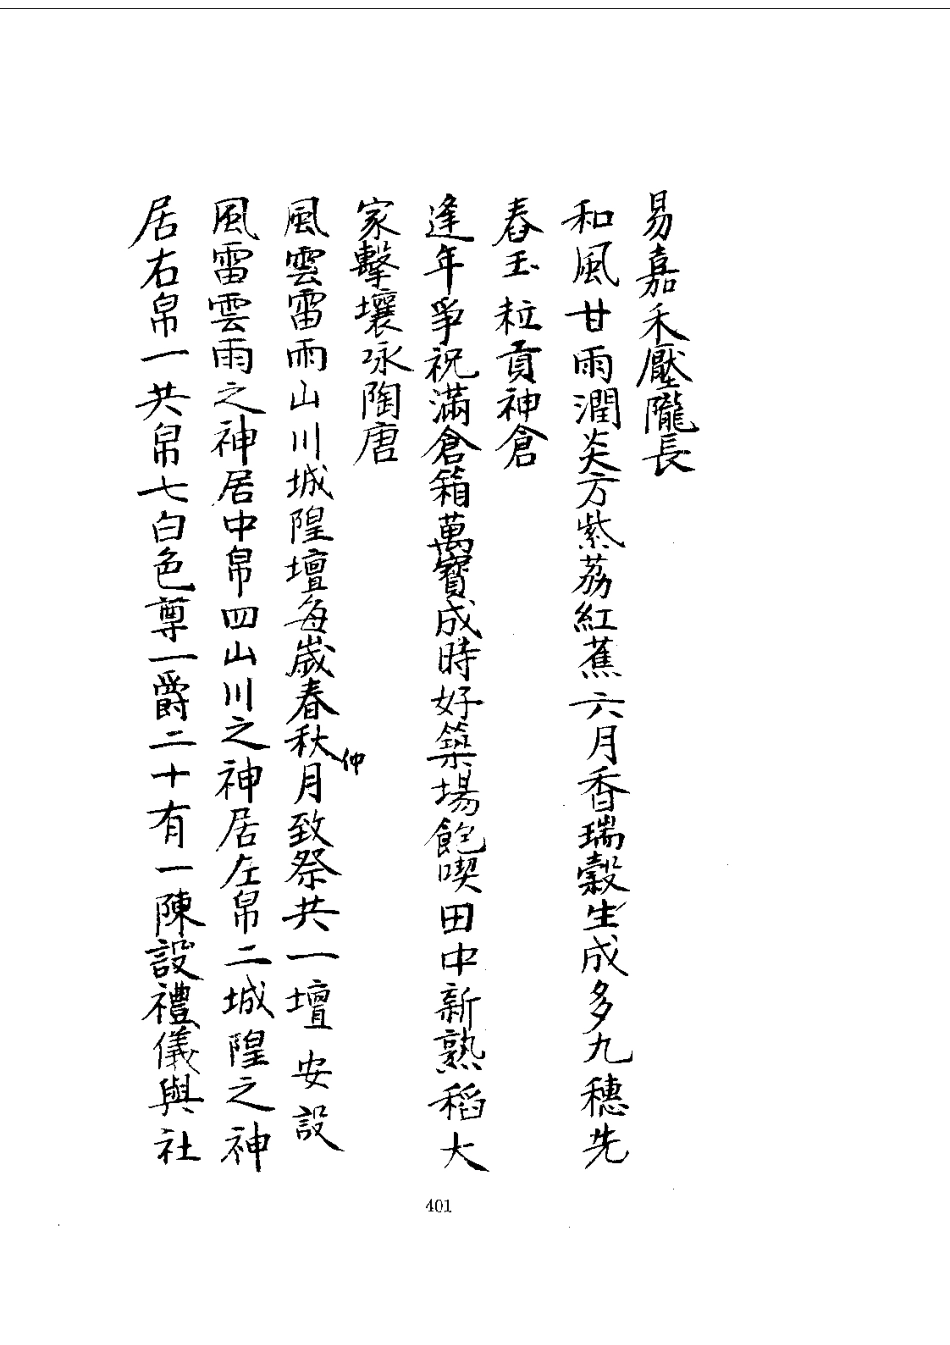 易嘉禾壓隴長
和風甘雨潤炎方紫荔紅蕉六月香瑞穀生成多九穗先
舂玉粒貢神倉
逢年爭祝滿倉箱萬寶成時好築場飽喫田中新熟稻大
家擊壤咏陶唐
風雲雷雨山川城隍壇每歲春秋仲月致祭共一壇安設
風雷雲雨之神居中帛四山川之神居左帛二城隍之神
居右帛一共帛七白色尊一爵二十有一陳設禮儀與社
401